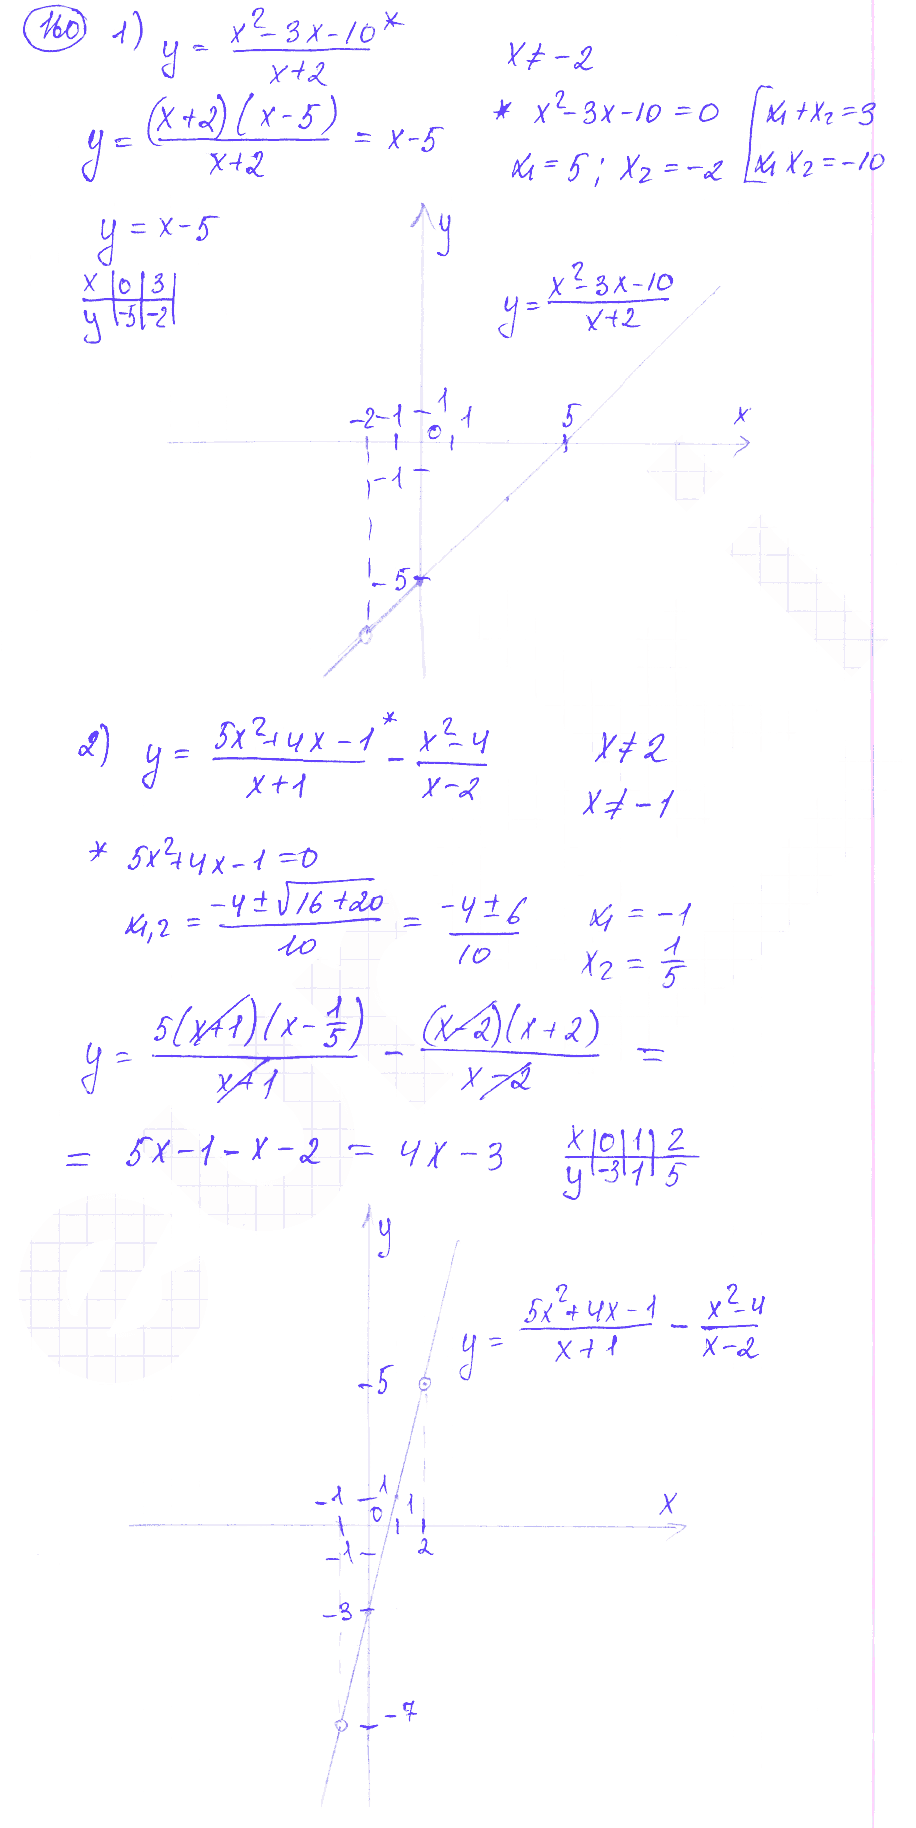 160 1) y = (x² - 3x - 10*)/(x + 2) x ≠ -2
y = ((x + 2)(x - 5))/(x + 2) = x - 5
* x² - 3x - 10 = 0 [x₁ + x₂ = 3
x₁ = 5; x₂ = -2 [x₁ x₂ = -10
y = x - 5
x | 0 | 3 |
y | -5 | -2 |
y
y = (x² - 3x - 10)/(x + 2)
-2 -1 1 0 1 5 x
-1
-5
2) y = (5x² + 4x - 1*)/(x + 1) - (x² - 4)/(x - 2) x ≠ 2
x ≠ -1
* 5x² + 4x - 1 = 0
x₁,₂ = (-4 ± √(16 + 20))/10 = (-4 ± 6)/10 x₁ = -1
x₂ = 1/5
y = (5(x + 1)(x - 1/5))/(x + 1) - ((x - 2)(x + 2))/(x - 2) =
= 5x - 1 - x - 2 = 4x - 3
x | 0 | 1 | 2
y | -3 | 1 | 5
y
y = (5x² + 4x - 1)/(x + 1) - (x² - 4)/(x - 2)
5
-1 1 0 1 x
-1 2
-3
-7